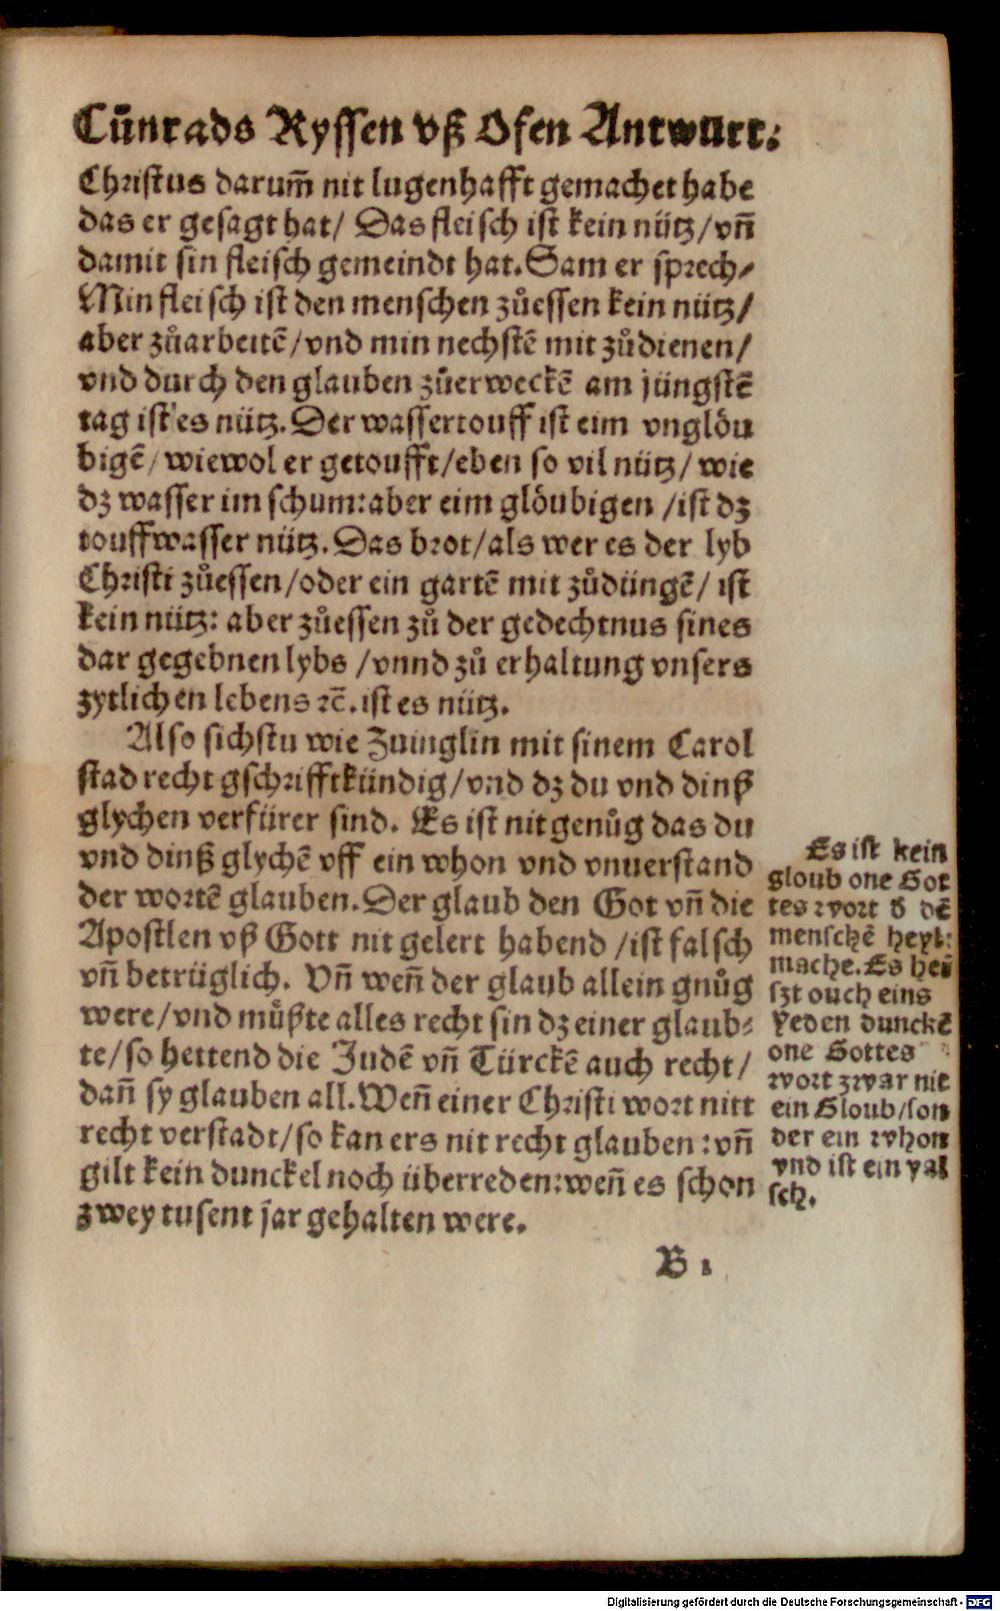 Cůnrads Ryssen vß Ofen Antwurt.
Christus darum̃ nit lugenhafft gemachet habe
das er gesagt hat/ Das fleisch ist kein nütz/ vñ
damit sin fleisch gemeindt hat. Sam er sprech/
Min fleisch ist den menschen zůessen kein nütz/
aber zůarbeitẽ/ vnd min nechstẽ mit zůdienen/
vnd durch den glauben zůerweckẽ am jüngstẽ
tag ist es nütz. Der wassertouff ist eim vnglöu
bigẽ/ wiewol er getoufft/ eben so vil nütz/ wie
dz wasser im schum: aber eim glöubigen /ist dz
touffwasser nütz. Das brot/ als wer es der lyb
Christi zůessen/ oder ein gartẽ mit zůdüngẽ/ ist
kein nütz: aber zůessen zů der gedechtnus sines
dar gegebnen lybs /vnnd zů erhaltung vnsers
zytlichen lebens ꝛc̃. ist es nütz.
Also sichstu wie Zuinglin mit sinem Carol
stad recht gschrifftkündig/ vnd dz du vnd dinß
glychen verfürer sind. Es ist nit genůg das du
vnd dinß glychẽ vff ein whon vnd vnuerstand
der wortẽ glauben. Der glaub den Got vñ die
Apostlen vß Gott nit gelert habend /ist falsch
vñ betrüglich. Vñ weñ der glaub allein gnůg
were/ vnd můßte alles recht sin dz einer glaub⸗
te/ so hettend die Judẽ vñ Türckẽ auch recht/
dañ sy glauben all. Weñ einer Christi wort nitt
recht verstadt/ so kan ers nit recht glauben: vñ
gilt kein dunckel noch überreden: weñ es schon
zwey tusent jar gehalten were.
Es ist kein
gloub one Got
tes wort d̕ dẽ
menschẽ heyl:
mache. Es hei
szt ouch eins
yeden dunckẽ
one Gottes
wort zwar nit
ein Gloub/ son
der ein whon
vnd ist ein val
sch.
B 1
Digitalisierung gefördert durch die Deutsche Forschungsgemeinschaft - DFG